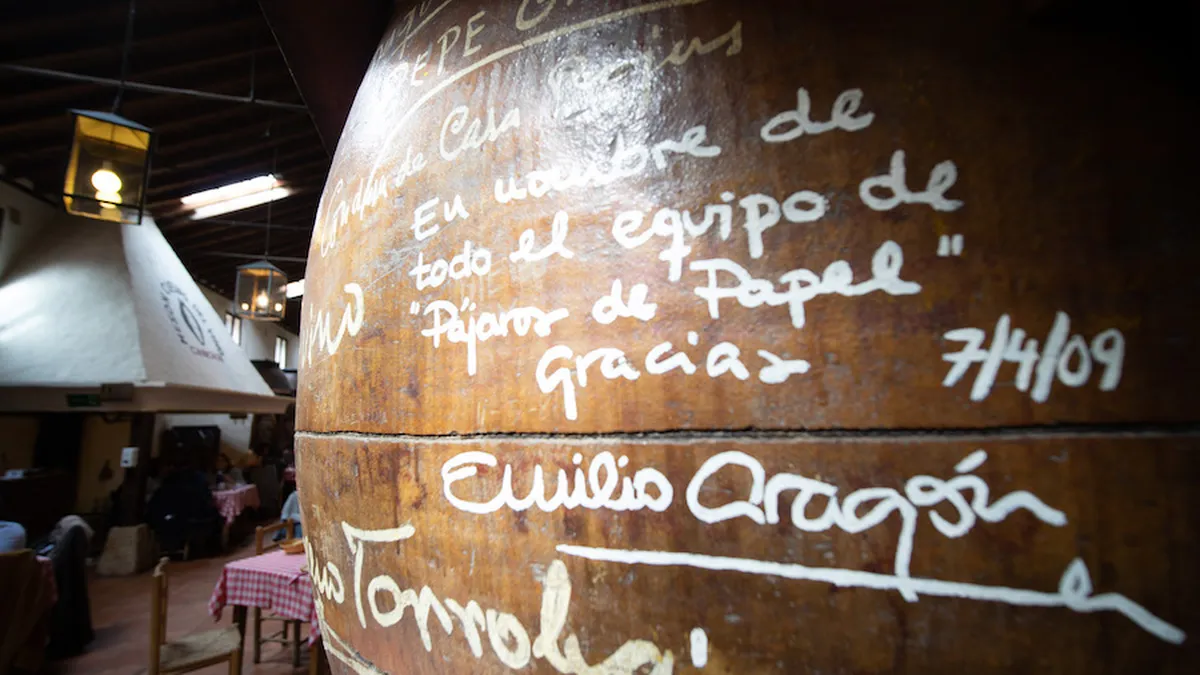 PEPE
Casa
En nombre de
todo el equipo de
"Pájaros de Papel"
Gracias
7/4/09
Emilio Aragón
Torroba